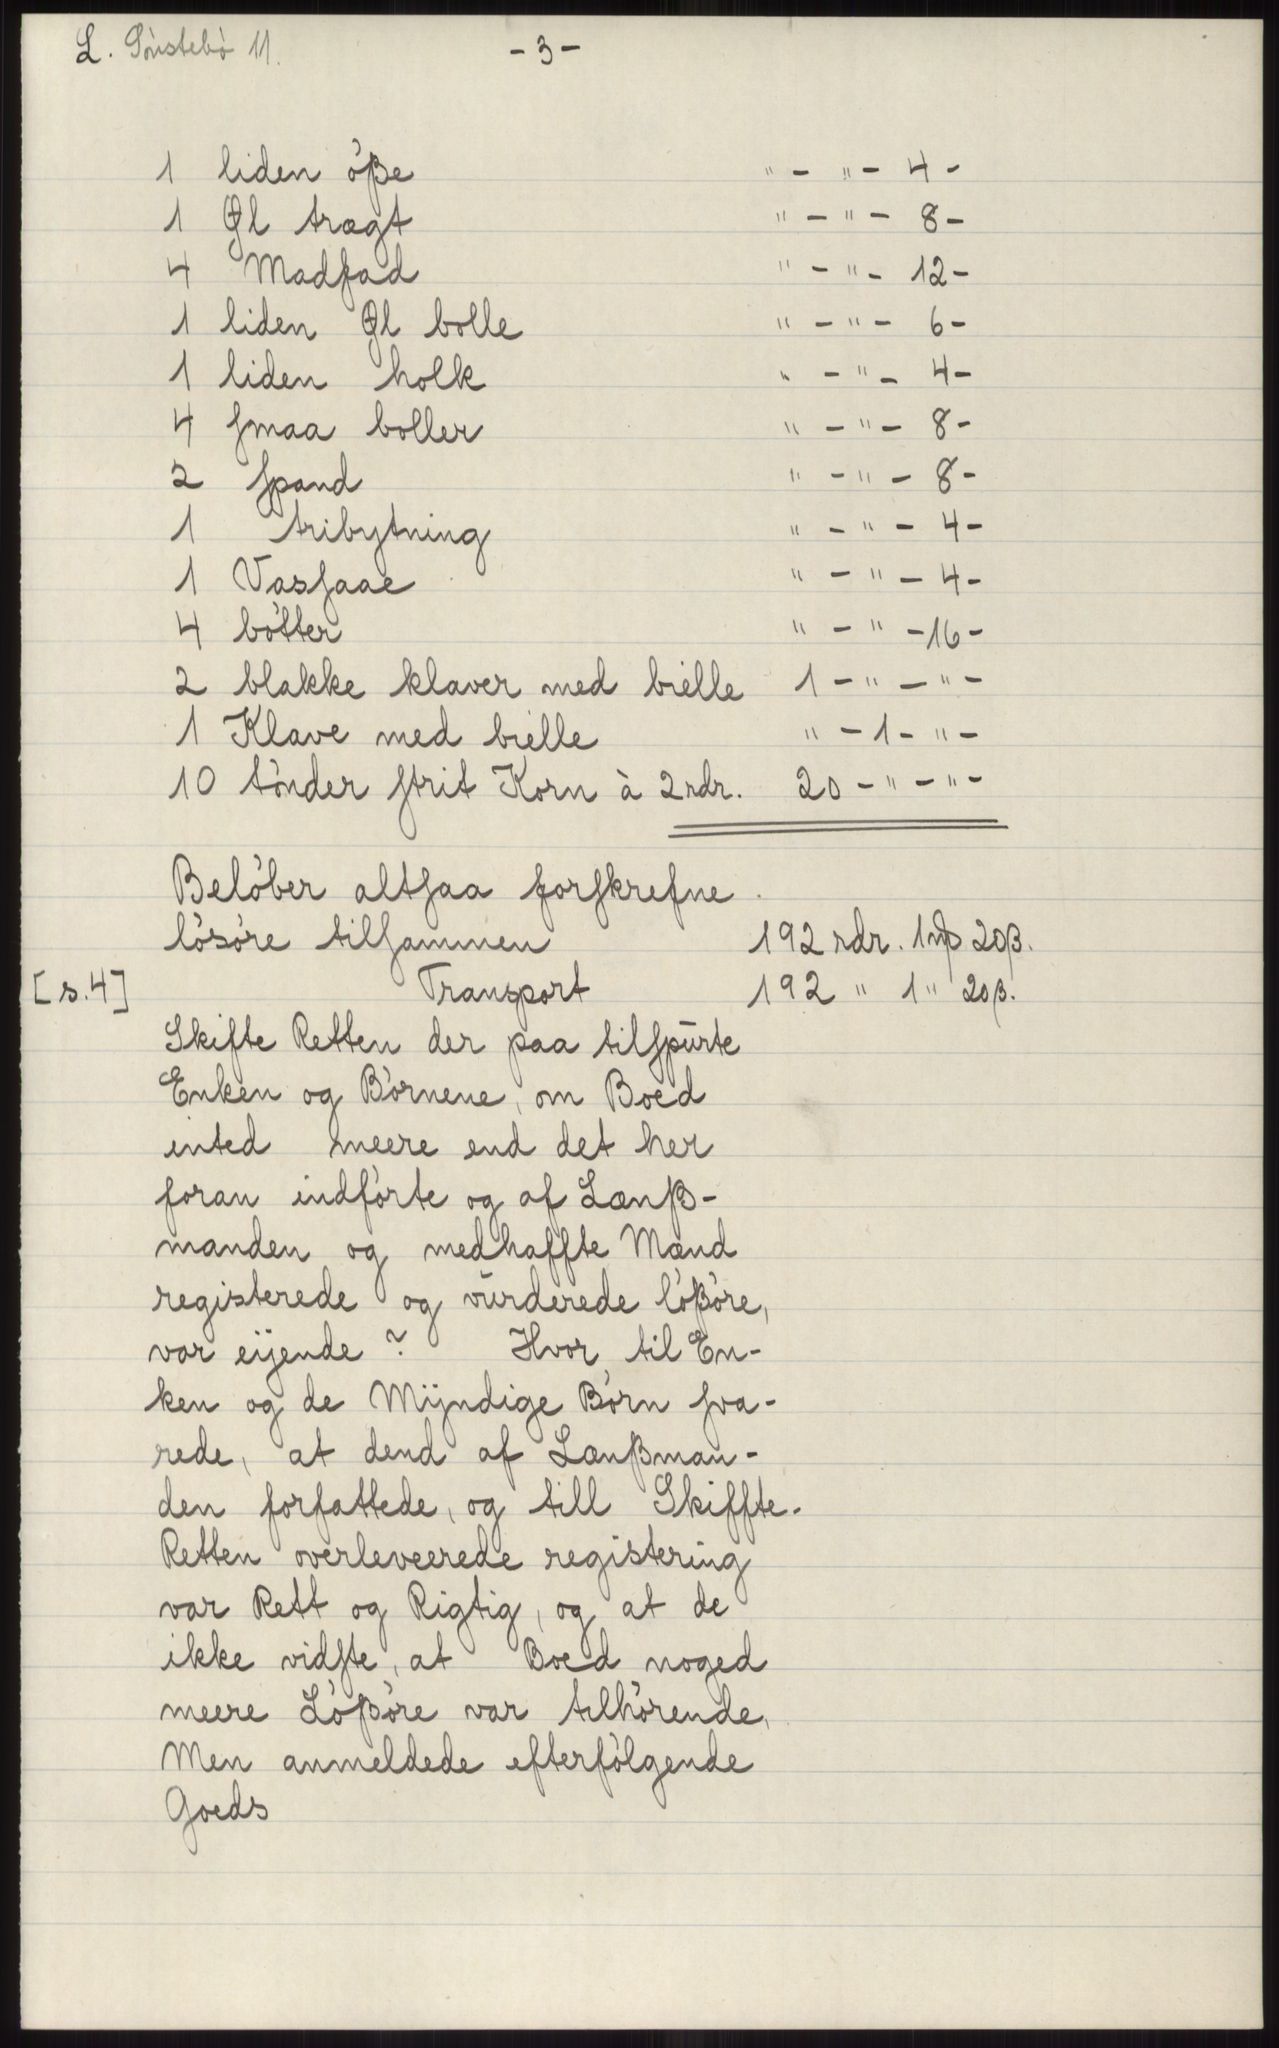 L. Sönstebö 11.
- 3 -
1 liden öße " - " - 4 -
1 Øl trægt " - " - 8 -
4 Madfad " - " - 12 -
1 liden Øl bolle " - " - 6 -
1 liden holk " - " - 4 -
4 smaa boller " - " - 8 -
2 spand " - " - 8 -
1 tribytning " - " - 4 -
1 Vassaae " - " - 4 -
4 bötter " - " - 16 -
2 blakke klaver med bielle 1 - " - " -
1 Klave med bielle " - 1 - " -
10 tönder strit Korn à 2 rdr. 20 - " - " -
Belöber altsaa forskrefne
lösöre tilsammen 192 rdr. 1 mß 20β.
[s.4] Transport 192 " 1 " 20β.
Skifte Retten der paa tilspurte
Enken og Börnene, om Boed
inted meere end det her
foran indförte og af Lænß-
manden og medhaffte Mænd
registerede og vurderede lößöre,
var eijende? Hvor til En-
ken og de Mijndige Börn sva-
rede, at dend af Lænßman-
den forfattede, og till Skiffte-
Retten overleveerede registering
var Rett og Rigtig, og at de
ikke vidste, at Boed noged
meere Lößöre var tilhörende,
Men anmeldede efterfölgende
Goeds